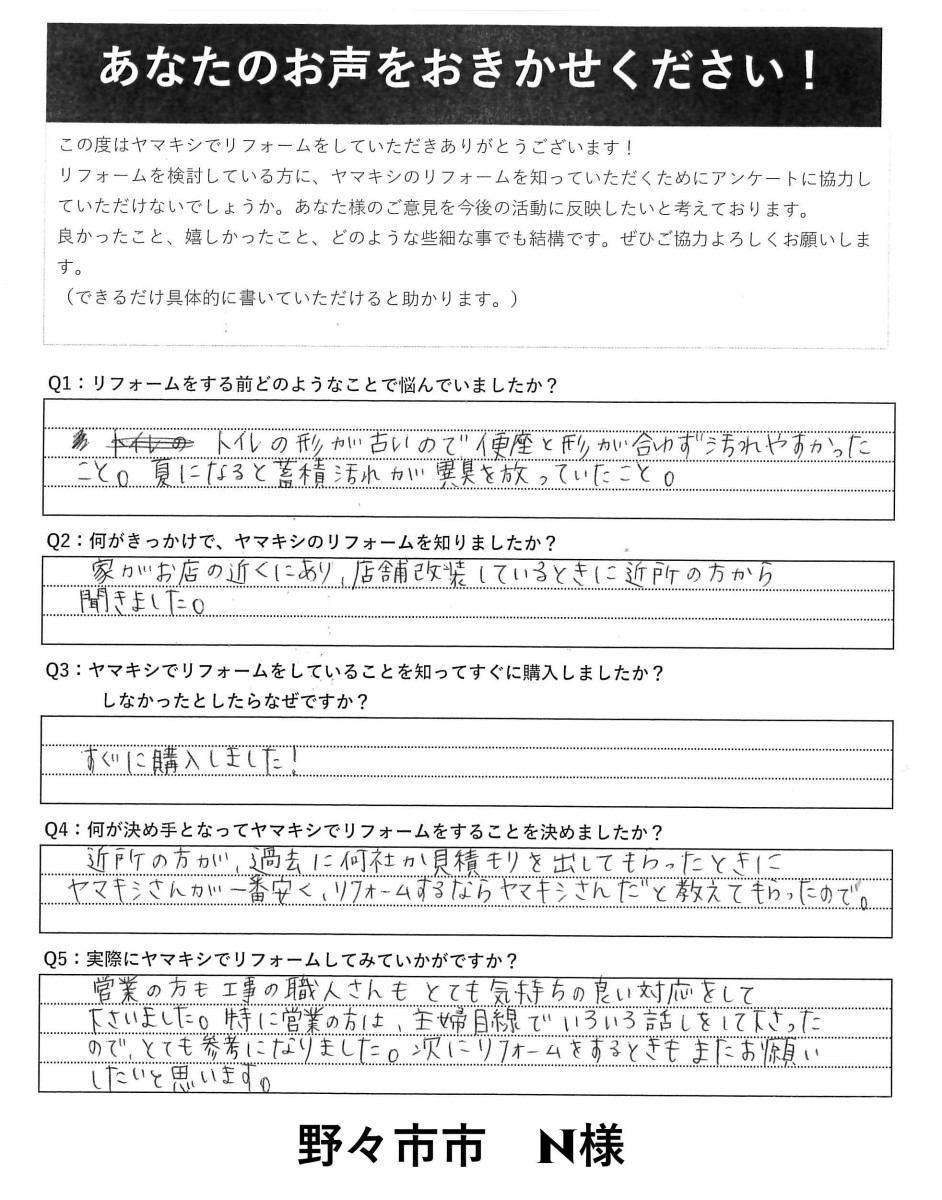 あなたのお声をおきかせください！
この度はヤマキシでリフォームをしていただきありがとうございます！
リフォームを検討している方に、ヤマキシのリフォームを知っていただくためにアンケートに協力し
ていただけないでしょうか。あなた様のご意見を今後の活動に反映したいと考えております。
良かったこと、嬉しかったこと、どのような些細な事でも結構です。ぜひご協力よろしくお願いしま
す。
（できるだけ具体的に書いていただけると助かります。）
Q1：リフォームをする前どのようなことで悩んでいましたか？
トイレの形が古いので便座と形が合わず汚れやすかった
こと。夏になると蓄積汚れが異臭を放っていたこと。
Q2：何がきっかけで、ヤマキシのリフォームを知りましたか？
家がお店の近くにあり、店舗改装しているときに近所の方から
聞きました。
Q3：ヤマキシでリフォームをしていることを知ってすぐに購入しましたか？
しなかったとしたらなぜですか？
すぐに購入しました！
Q4：何が決め手となってヤマキシでリフォームをすることを決めましたか？
近所の方が、過去に何社か見積もりを出してもらったときに
ヤマキシさんが一番安く、リフォームするならヤマキシさんだと教えてもらったので。
Q5：実際にヤマキシでリフォームしてみていかがですか？
営業の方も工事の職人さんもとても気持ちの良い対応をして
下さいました。特に営業の方は、主婦目線でいろいろ話しをして下さった
ので、とても参考になりました。次にリフォームをするときもまたお願い
したいと思います。
野々市市　N様